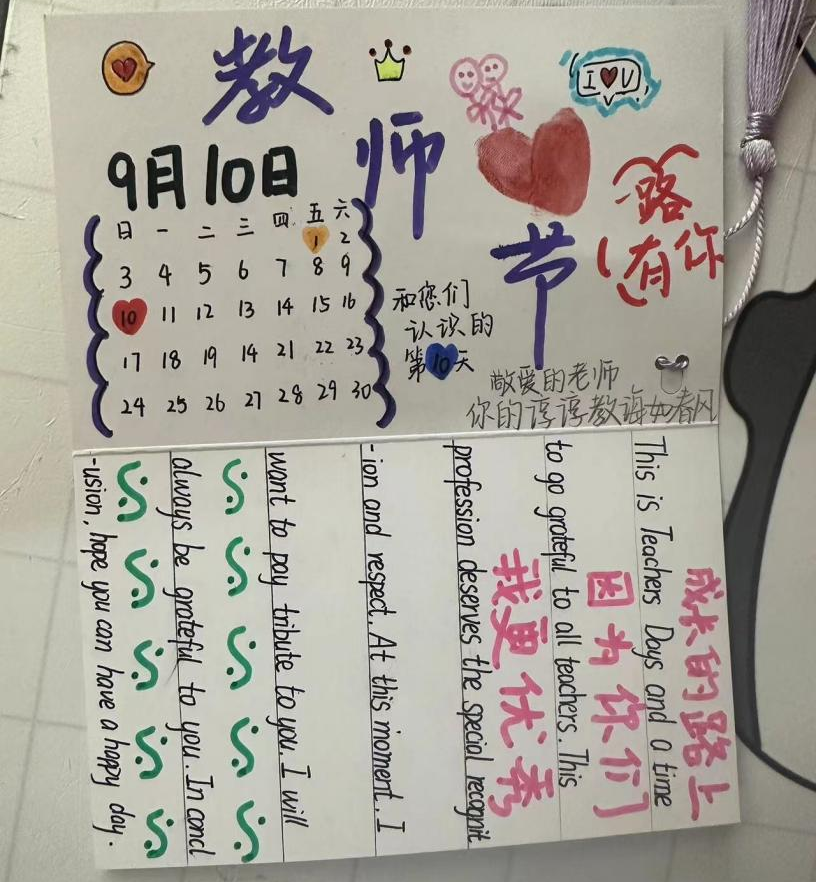 教师节
I ♥ U
9月10日
一路
有你
日 一 二 三 四 五 六
1 2
3 4 5 6 7 8 9
10 11 12 13 14 15 16
17 18 19 14 21 22 23
24 25 26 27 28 29 30
和您们
认识的
第10天
敬爱的老师
你的谆谆教诲如春风
成长的路上
This is Teachers Days and a time
因为你们
to go grateful to all teachers. This
我更优秀
profession deserves the special recognit
-ion and respect. At this moment, I
want to pay tribute to you. I will
always be grateful to you. In concl
-usion, hope you can have a happy day.